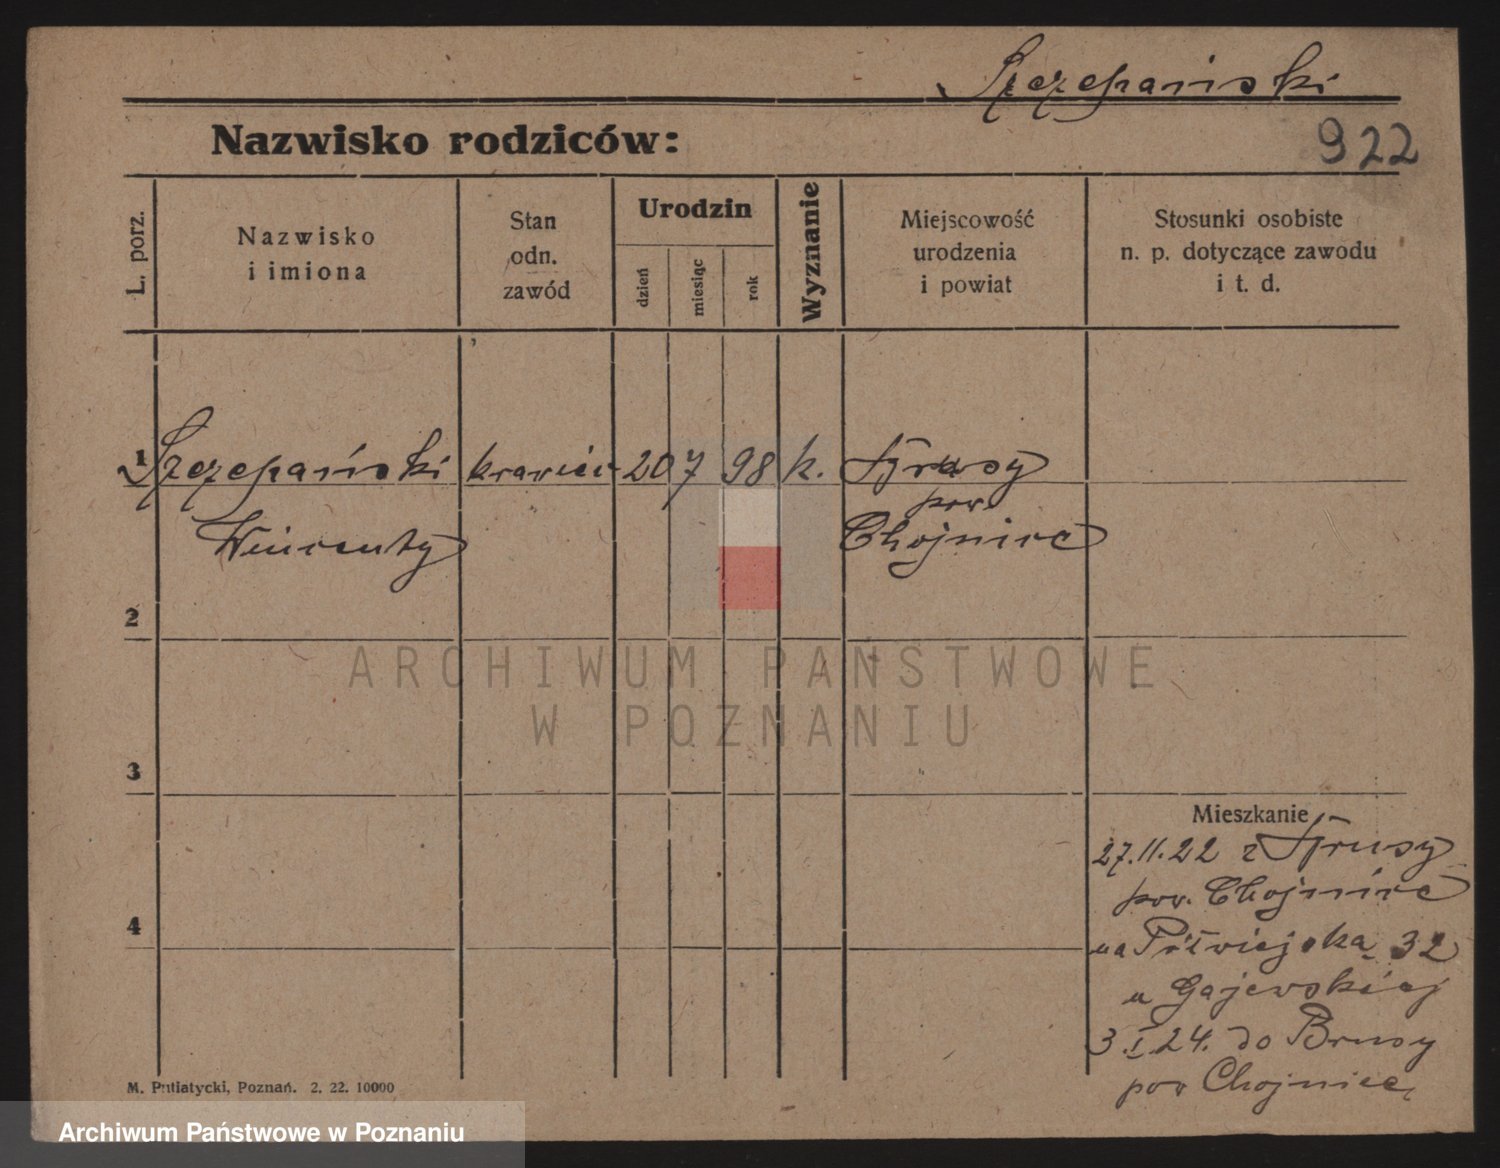 Szczepański
Nazwisko rodziców:
922
L. porz.
Nazwisko
i imiona
Stan
odn.
zawód
Urodzin
dzień
miesiąc
rok
Wyznanie
Miejscowość
urodzenia
i powiat
Stosunki osobiste
n. p. dotyczące zawodu
i t. d.
1 Szczepański krawiec 20 7 98 k. Brusy
pow.
Wincenty Chojnice
2
ARCHIWUM PAŃSTWOWE
W POZNANIU
3
Mieszkanie
27.11.22 z Brusy
pow. Chojnice
4
na Półwiejską 32
u Gajewskiej
3.I.24. do Brusy
pow Chojnice
M. Putiatycki, Poznań. 2. 22. 10000
Archiwum Państwowe w Poznaniu